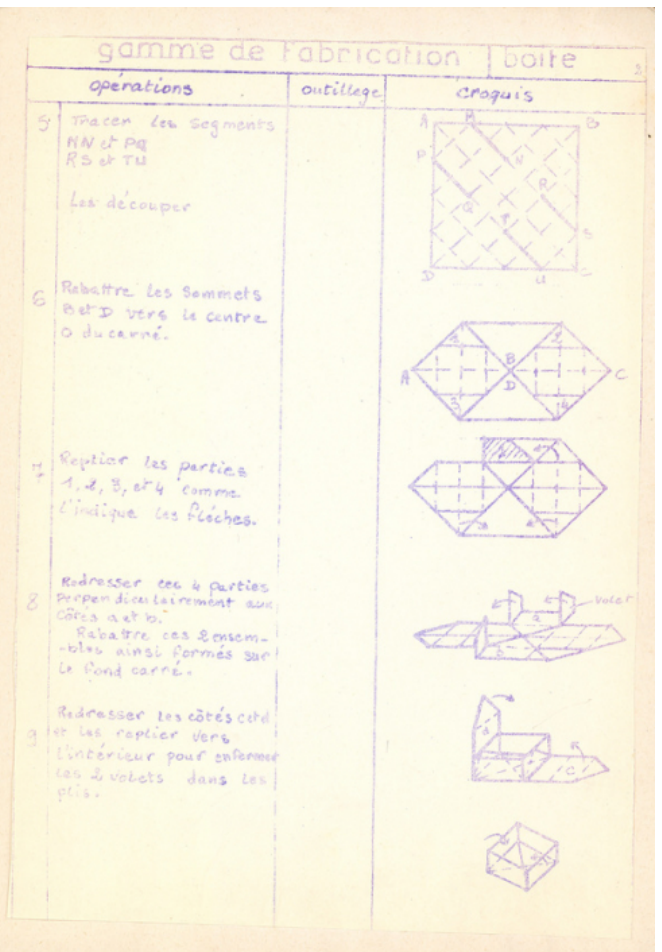 gamme de fabrication | boite
2
opérations outillage croquis
5 Tracer les segments
MN et PQ
RS et TU
Les découper
A M B
P N
Q R
T S
D U C
6 Rabattre les sommets
B et D vers le centre
O du carré.
1 2
A B C
D
3 4
7 Replier les parties
1, 2, 3, et 4 comme
l'indique les flèches.
8 Redresser ces 4 parties
perpendiculairement aux
côtés a et b.
Rabattre ces 2 ensem-
-bles ainsi formés sur
le fond carré.
volet
a
b
9 Redresser les côtés c et d
et les replier vers
l'intérieur pour enfermer
les 2 volets dans les
plis.
d
c